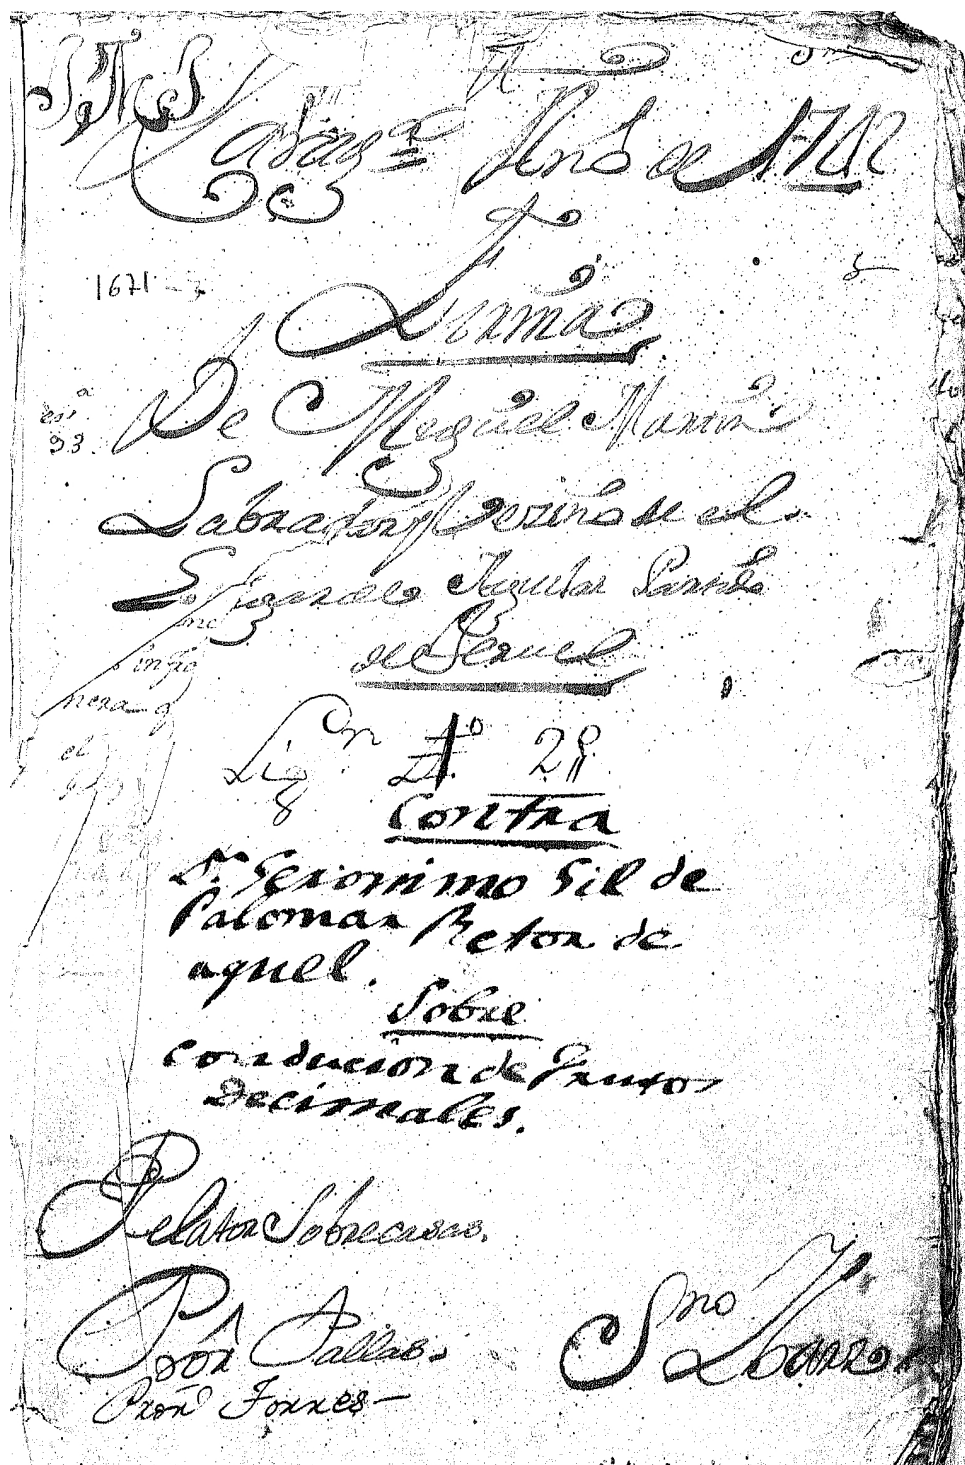 Zarag.ª Año de 1712
1671
Firma
De Miguel Martin
Labrador Vezino de el
Lugar de Aguilar Partido
de Teruel
Lig.n 4º 2º
Contra
D.n Geronimo Gil de
Palomar Retor de
aquel.
Sobre
Conducion de Frutos
Decimales.
Relator Sobrecasas.
Pror Pallas.
Sno Ybarra
Pror Torres